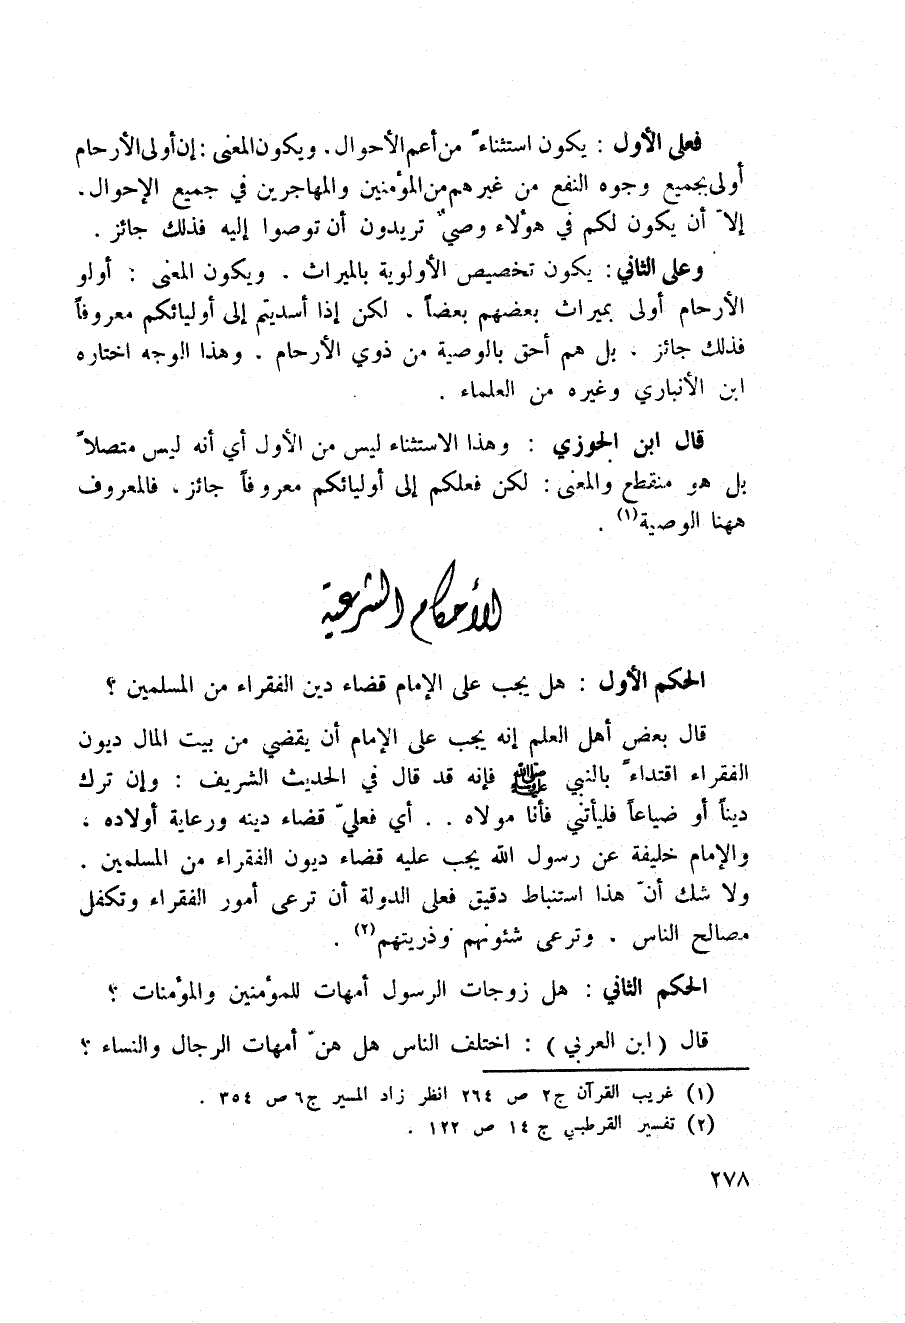 فعلى الأول : يكون استثناءً من أعم الأحوال . ويكون المعنى : إن أولى الأرحام
أولى بجميع وجوه النفع من غيرهم من المؤمنين والمهاجرين في جميع الإحوال .
إلاّ أن يكون لكم في هؤلاء وصيٌ تريدون أن توصوا إليه فذلك جائز .
وعلى الثاني : يكون تخصيص الأولوية بالميراث . ويكون المعنى : أولو
الأرحام أولى بميراث بعضهم بعضاً . لكن إذا أسديتم إلى أوليائكم معروفاً
فذلك جائز . بل هم أحق بالوصية من ذوي الأرحام . وهذا الوجه اختاره
ابن الأنباري وغيره من العلماء .
قال ابن الجوزي : وهذا الاستثناء ليس من الأول أي أنه ليس متصلاً
بل هو منقطع والمعنى : لكن فعلكم إلى أوليائكم معروفاً جائز ، فالمعروف
ههنا الوصية(١) .
الأحكام الشرعية
الحكم الأول : هل يجب على الإمام قضاء دين الفقراء من المسلمين ؟
قال بعض أهل العلم إنه يجب على الإمام أن يقضي من بيت المال ديون
الفقراء اقتداءً بالنبي ﷺ فإنه قد قال في الحديث الشريف : وإن ترك
ديناً أو ضياعاً فليأتني فأنا مولاه . . أي فعليّ قضاء دينه ورعاية أولاده ،
والإمام خليفة عن رسول الله يجب عليه قضاء ديون الفقراء من المسلمين .
ولا شك أنّ هذا استنباط دقيق فعلى الدولة أن ترعى أمور الفقراء وتكفل
مصالح الناس . وترعى شئونهم وذريتهم(٢) .
الحكم الثاني : هل زوجات الرسول أمهات للمؤمنين والمؤمنات ؟
قال ( ابن العربي ) : اختلف الناس هل هنّ أمهات الرجال والنساء ؟
(١) غريب القرآن ج٢ ص ٢٦٤ انظر زاد المسير ج٦ ص ٣٥٤ .
(٢) تفسير القرطبي ج ١٤ ص ١٢٢ .
٢٧٨